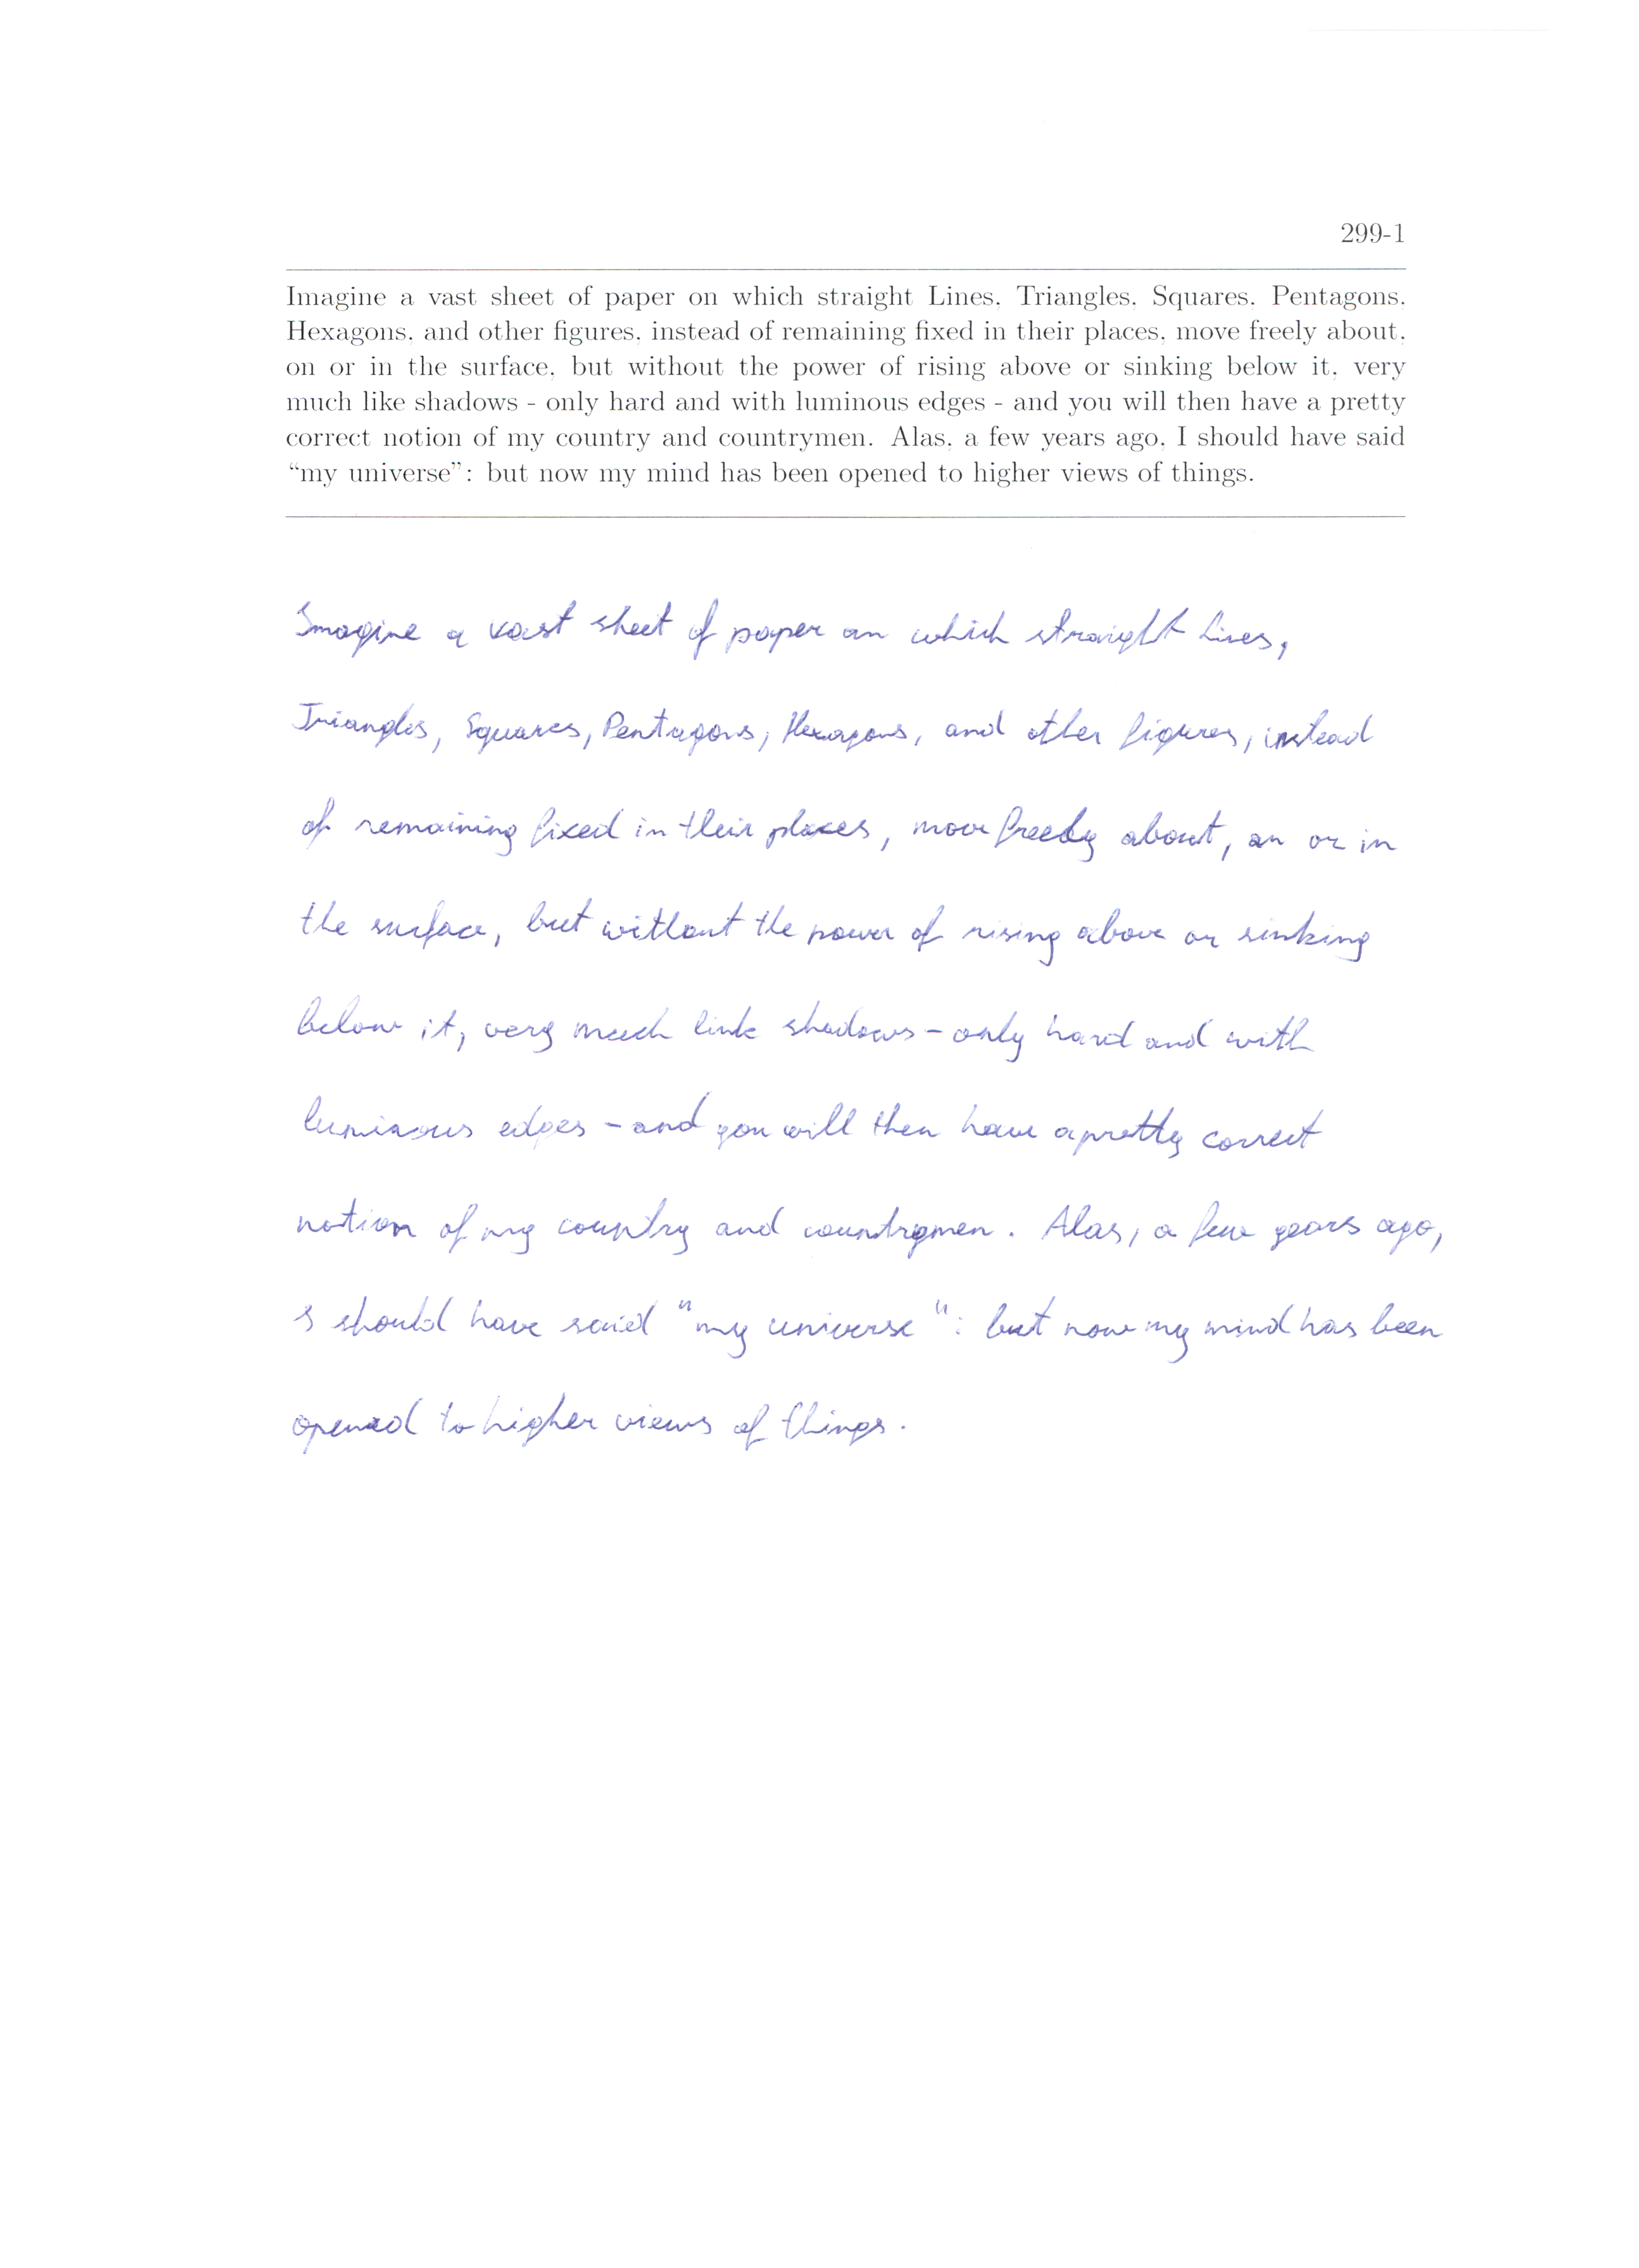 299-1
Imagine a vast sheet of paper on which straight Lines, Triangles, Squares, Pentagons,
Hexagons, and other figures, instead of remaining fixed in their places, move freely about,
on or in the surface, but without the power of rising above or sinking below it, very
much like shadows - only hard and with luminous edges - and you will then have a pretty
correct notion of my country and countrymen. Alas, a few years ago, I should have said
“my universe”: but now my mind has been opened to higher views of things.
Imagine a vast sheet of paper on which straight Lines,
Triangles, Squares, Pentagons, Hexagons, and other figures, instead
of remaining fixed in their places, move freely about, on or in
the surface, but without the power of rising above or sinking
below it, very much link shadows - only hard and with
luminous edges - and you will then have a pretty correct
notion of my country and countrymen. Alas, a few years ago,
I should have said "my universe": but now my mind has been
opened to higher views of things.